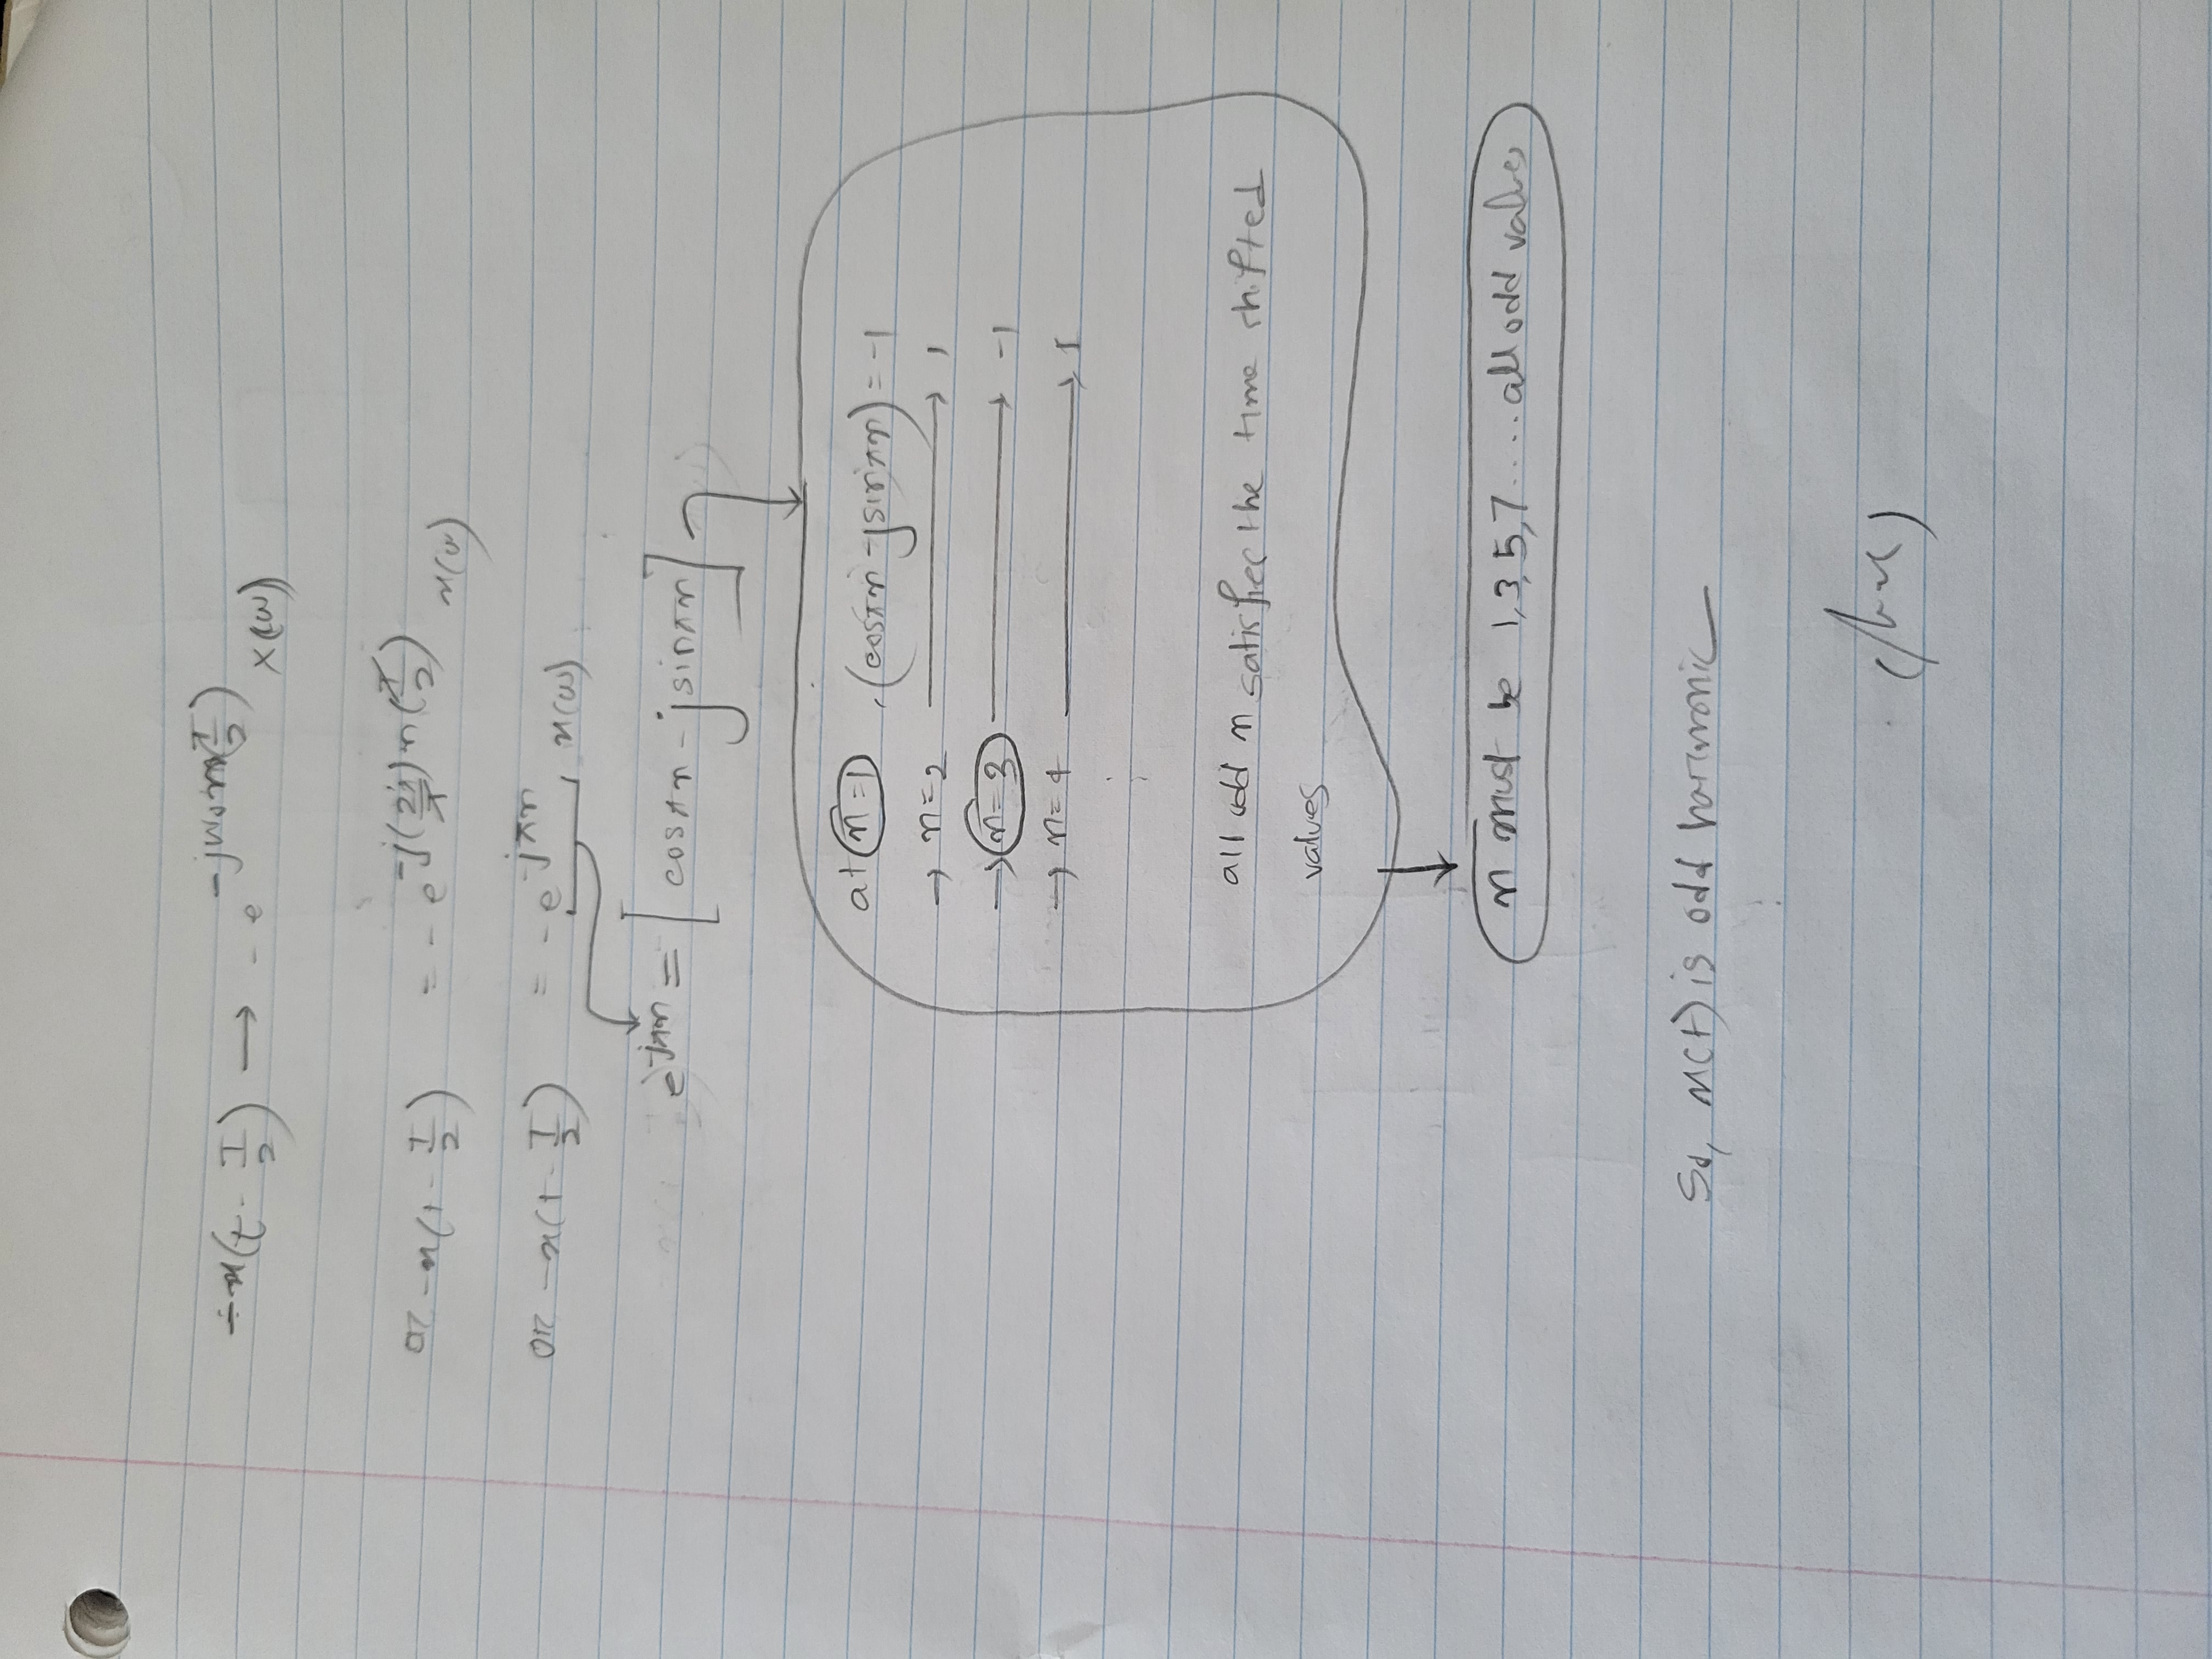 -x(t - T/2) → - e^{-jω₀n(T/2)} X(ω)
or -x(t - T/2) = - e^{-j(2π/T)n(T/2)} x(ω)
or -x(t - T/2) = - e^{-jπn} x(ω)
e^{-jπn} = [cosπn - jsinπn]
at n=1, (cosπn - jsinπn) = -1
→ n=2 → 1
→ n=3 → -1
→ n=4 → 1
all odd n satisfies the time shifted
values
n must be 1,3,5,7.....all odd values
So, x(t) is odd harmonic